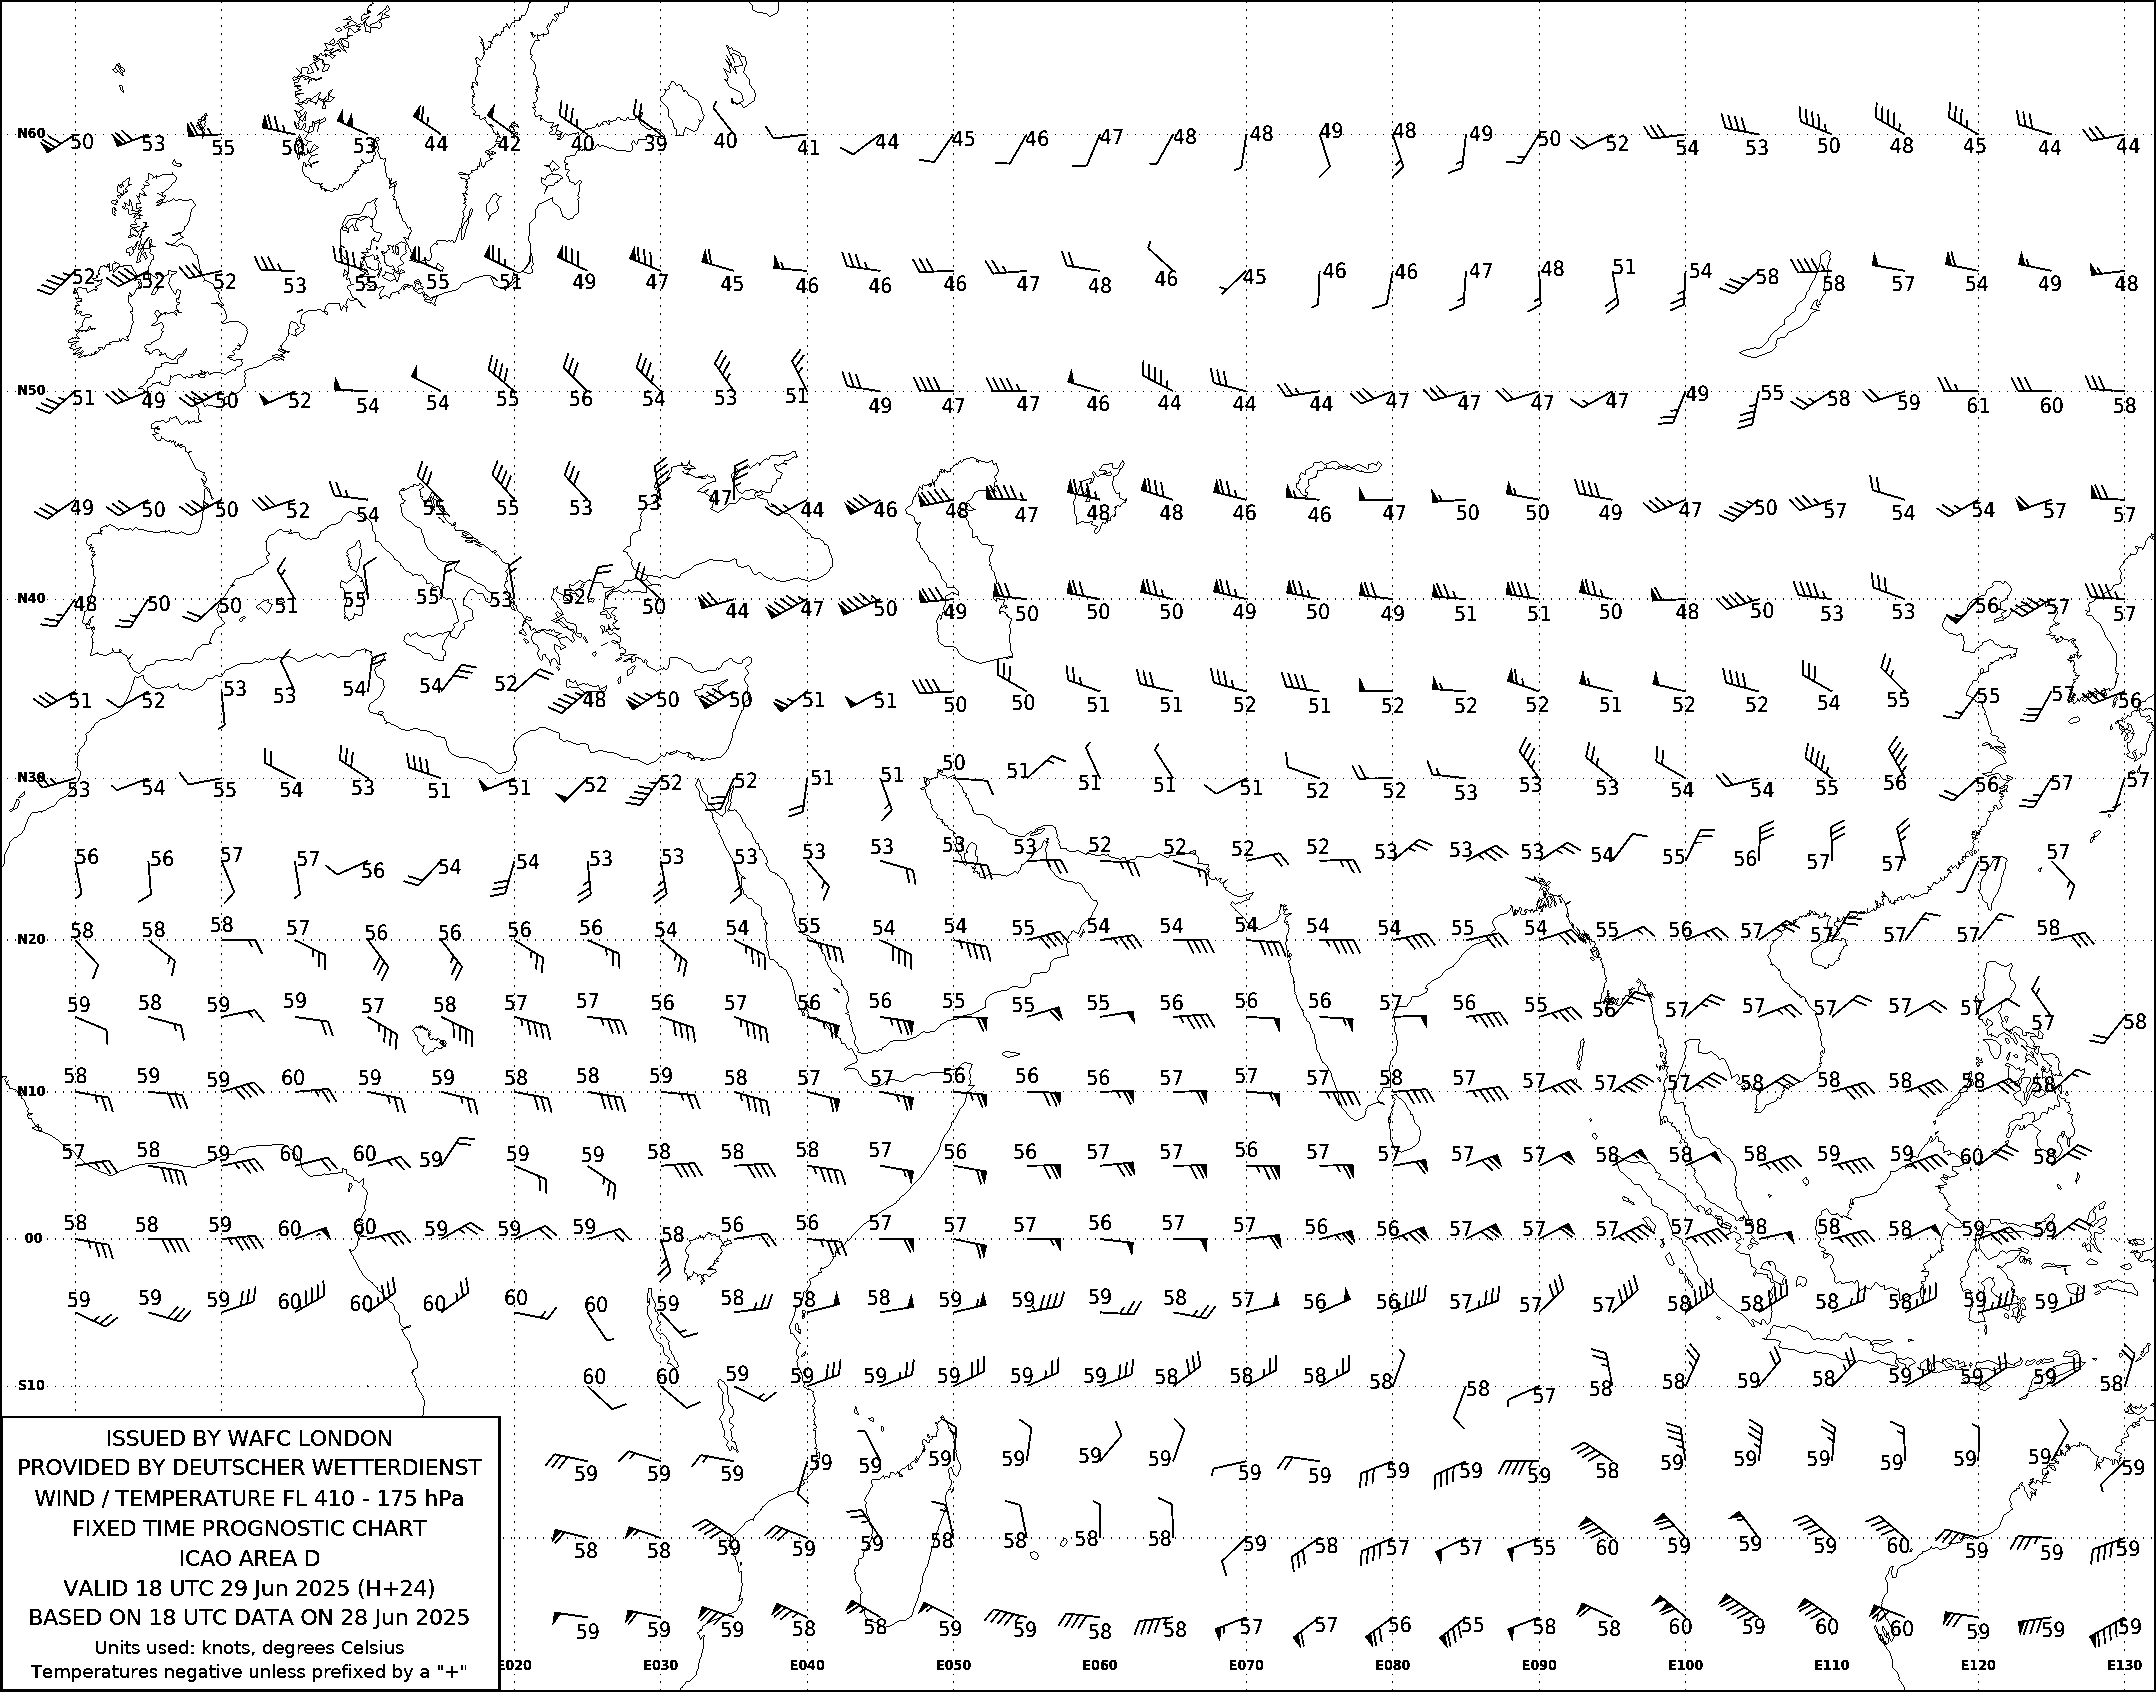 N60 50 53 55 50 53 44 42 40 39 40 41 44 45 46 47 48 48 49 48 49 50 52 54 53 50 48 45 44 44
52 52 52 53 55 55 51 49 47 45 46 46 46 47 48 46 45 46 46 47 48 51 54 58 58 57 54 49 48
N50 51 49 50 52 54 54 55 56 54 53 51 49 47 47 46 44 44 44 47 47 47 47 49 55 58 59 61 60 58
49 50 50 52 54 55 55 53 53 47 44 46 48 47 48 48 46 46 47 50 50 49 47 50 57 54 54 57 57
N40 48 50 50 51 55 55 53 52 50 44 47 50 49 50 50 50 49 50 49 51 51 50 48 50 53 53 56 57 57
51 52 53 53 54 54 52 48 50 50 51 51 50 50 51 51 52 51 52 52 52 51 52 52 54 55 55 57 56
N30 53 54 55 54 53 51 51 52 52 52 51 51 50 51 51 51 51 52 52 53 53 53 54 54 55 56 56 57 57
56 56 57 57 56 54 54 53 53 53 53 53 53 53 52 52 52 52 53 53 53 54 55 56 57 57 57 57
N20 58 58 58 57 56 56 56 56 54 54 55 54 54 55 54 54 54 54 54 55 54 55 56 57 57 57 57 58
59 58 59 59 57 58 57 57 56 57 56 56 55 55 55 56 56 56 57 56 55 56 57 57 57 57 57 57 58
N10 58 59 59 60 59 59 58 58 59 58 57 57 56 56 56 57 57 57 58 57 57 57 57 58 58 58 58 58
57 58 59 60 60 59 59 59 58 58 58 57 56 56 57 57 56 57 57 57 57 58 58 58 59 59 60 58
00 58 58 59 60 60 59 59 59 58 56 56 57 57 57 56 57 57 56 56 57 57 57 57 58 58 58 59 59
59 59 59 60 60 60 60 60 59 58 58 58 59 59 59 58 57 56 56 57 57 57 58 58 58 58 59 59
S10 60 60 59 59 59 59 59 59 58 58 58 58 58 57 58 58 59 58 59 59 59 58
59 59 59 59 59 59 59 59 59 59 59 59 59 59 58 59 59 59 59 59 59 59
58 58 59 59 59 58 58 58 58 59 58 57 57 55 60 59 59 59 60 59 59 59
59 59 59 58 58 59 59 58 58 57 57 56 55 58 58 60 59 60 60 59 59 59
E020 E030 E040 E050 E060 E070 E080 E090 E100 E110 E120 E130
ISSUED BY WAFC LONDON
PROVIDED BY DEUTSCHER WETTERDIENST
WIND / TEMPERATURE FL 410 - 175 hPa
FIXED TIME PROGNOSTIC CHART
ICAO AREA D
VALID 18 UTC 29 Jun 2025 (H+24)
BASED ON 18 UTC DATA ON 28 Jun 2025
Units used: knots, degrees Celsius
Temperatures negative unless prefixed by a "+"